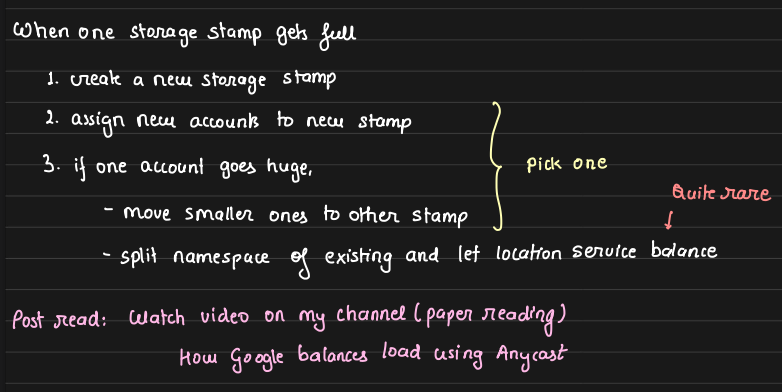 When one storage stamp gets full
1. create a new storage stamp
2. assign new accounts to new stamp
3. if one account goes huge,
Pick one
Quite rare
- move smaller ones to other stamp
- split namespace of existing and let location service balance
Post read: Watch video on my channel (paper reading)
How Google balances load using Anycast